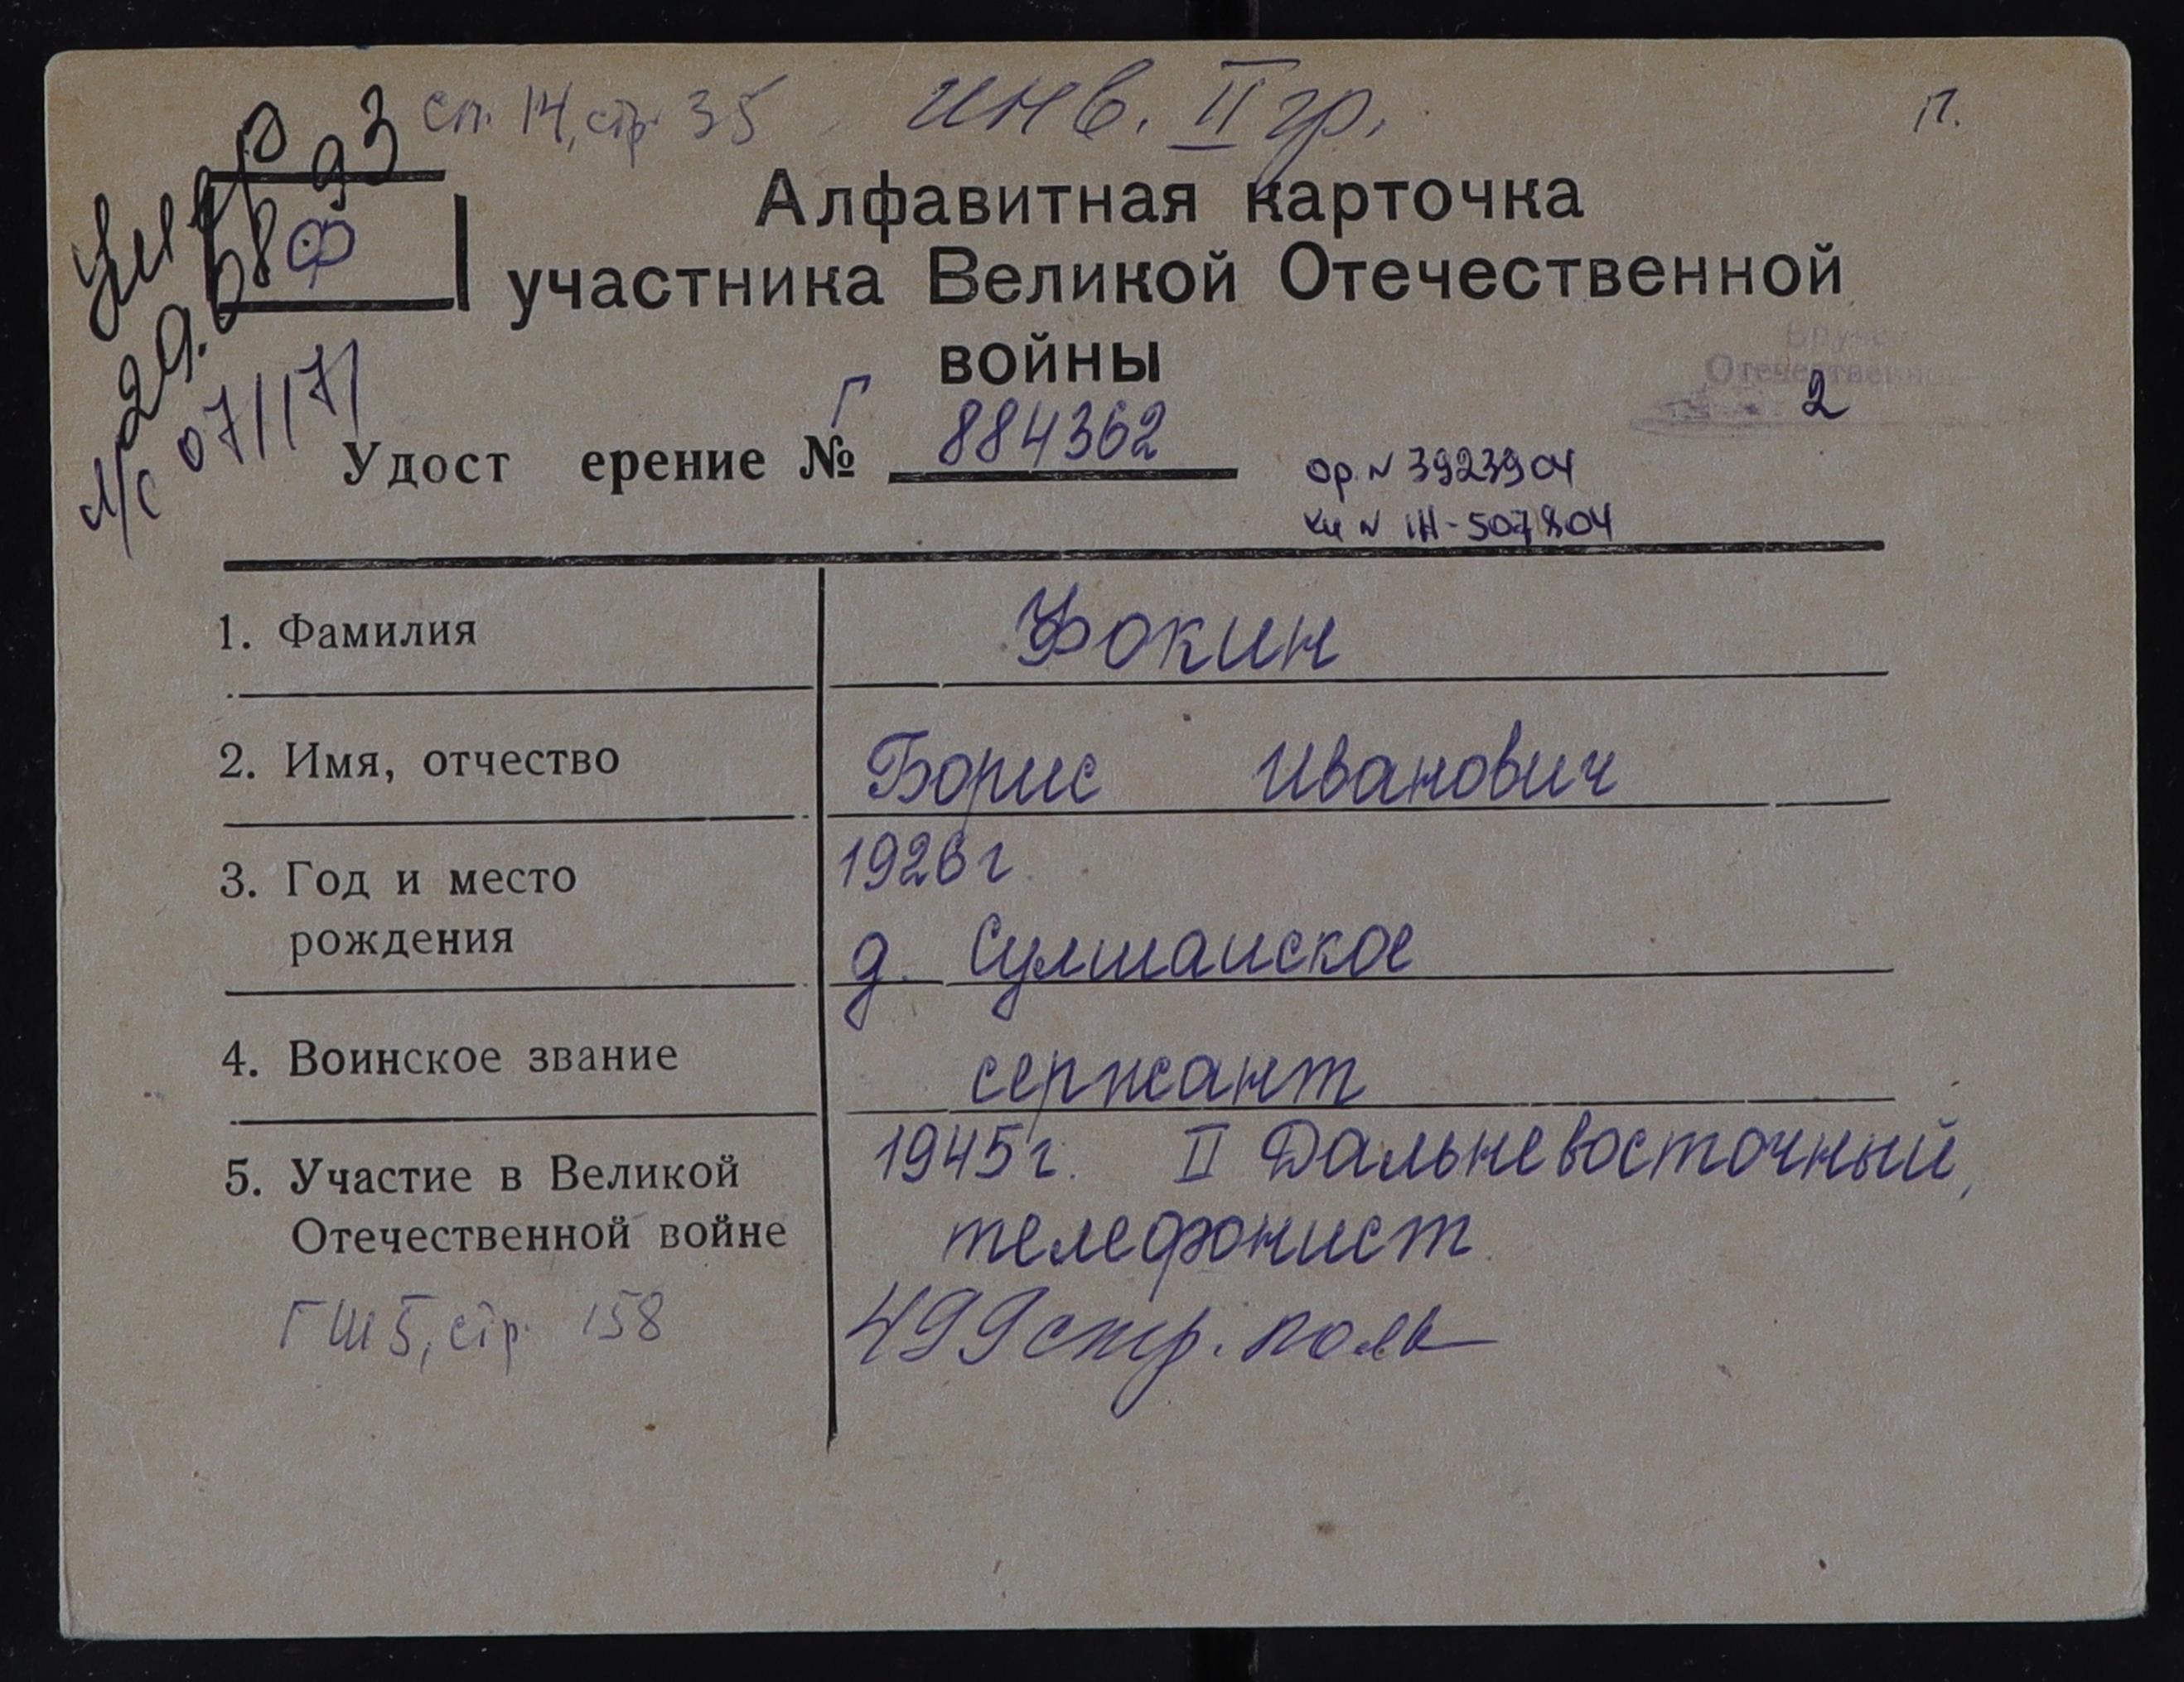 сп. 14, стр. 35 инв. II гр. П.
Умер
29.08.93
Ф
л/с 07/171
Алфавитная карточка
участника Великой Отечественной
войны
Отечественно
2
Удост ерение № Г 884362
ор. N 3923904
кн N 1Н-507804
1. Фамилия
Фокин
2. Имя, отчество
Борис Иванович
3. Год и место
рождения
1926 г.
д. Сулшанское
4. Воинское звание
сержант
5. Участие в Великой
Отечественной войне
1945 г. II Дальневосточный,
телефонист
499 стр. полк
ГШ 5, стр. 158